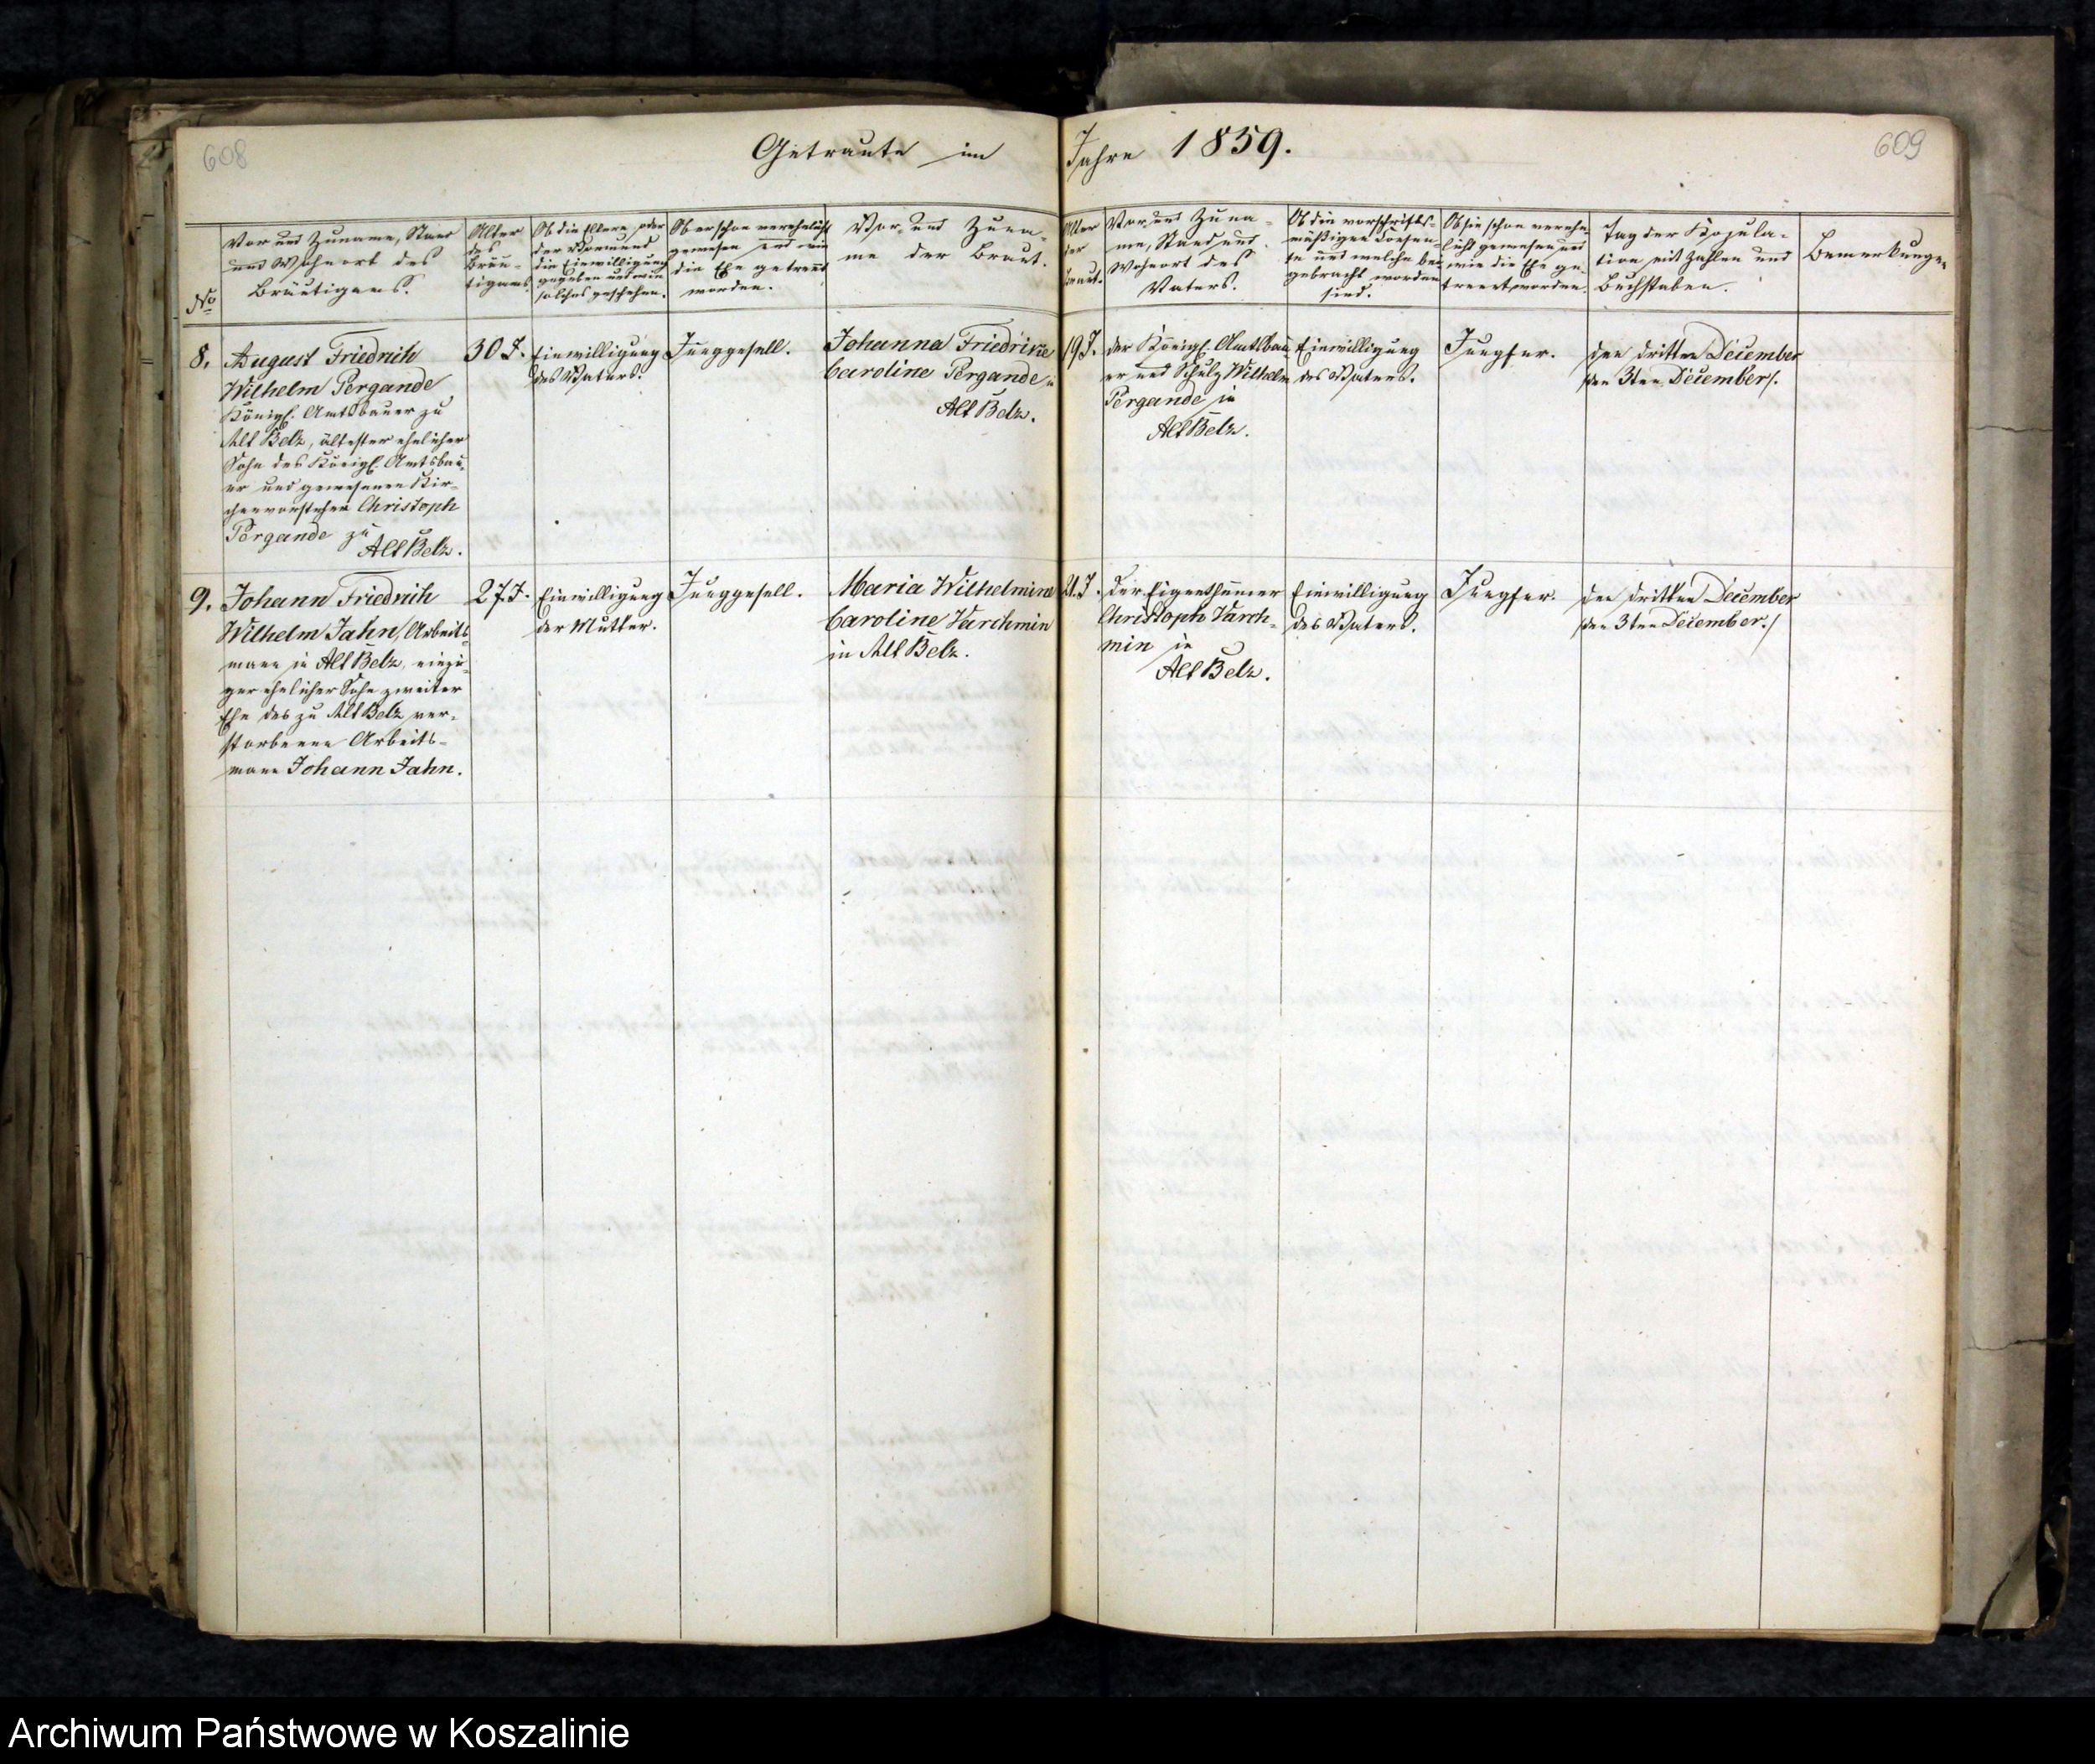 608
609
Getraute im Jahre 1859.
No
Vor und Zuname, Stand
und Wohnort des
Bräutigams.
Alter
des
Bräu-
tigams.
Ob die Eltern oder
der Vormund
die Einwilligung
gegeben und wie
solches geschehen.
Ob er schon verehelicht
gewesen und wie
die Ehe getrennt
worden.
Vor- und Zuna-
me der Braut.
Alter
der
Braut.
Vor und Zuna-
me, Stand und
Wohnort des
Vaters.
Ob die vorschrifts-
mäßigen Konsen-
se und welche bei-
gebracht worden
sind.
Ob sie schon verehe-
licht gewesen und
wie die Ehe ge-
trennt worden.
Tag der Kopula-
tion mit Zahlen und
Buchstaben.
Bemerkungen
8.
August Friedrich
Wilhelm Pergande
Königl. Amtsbauer zu
Alt Belz, ältester ehelicher
Sohn des Königl. Amtsbau-
er und gewesenen Kir-
chenvorsteher Christoph
Pergande zu
Alt Belz.
30 J.
Einwilligung
des Vaters.
Junggesell.
Johanna Friedrike
Caroline Pergande in
Alt Belz.
19 J.
der Königl. Amtsbau-
er und Schulz Wilhelm
Pergande in
Alt Belz.
Einwilligung
des Vaters.
Jungfer.
den dritten December
/den 3ten December/.
9.
Johann Friedrich
Wilhelm Jahn, Arbeits-
mann in Alt Belz, einzi-
ger ehelicher Sohn zweiter
Ehe des zu Alt Belz ver-
storbenen Arbeits-
mann Johann Jahn.
27 J.
Einwilligung
der Mutter.
Junggesell.
Maria Wilhelmine
Caroline Varchmin
in Alt Belz.
21. J.
der Eigenthümer
Christoph Varch-
min in
Alt Belz.
Einwilligung
des Vaters.
Jungfer.
den dritten December
/den 3ten December./
Archiwum Państwowe w Koszalinie